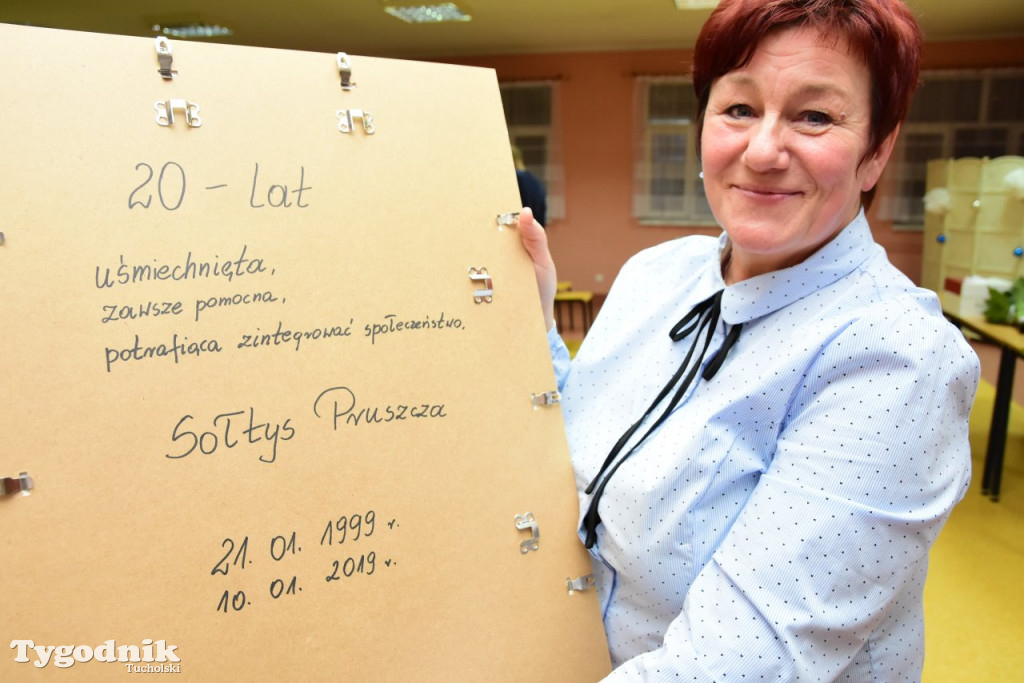 20 - lat
uśmiechnięta,
zawsze pomocna,
potrafiąca zintegrować społeczeństwo.
Sołtys Pruszcza
21. 01. 1999 r.
10. 01. 2019 r.
Tygodnik
Tucholski